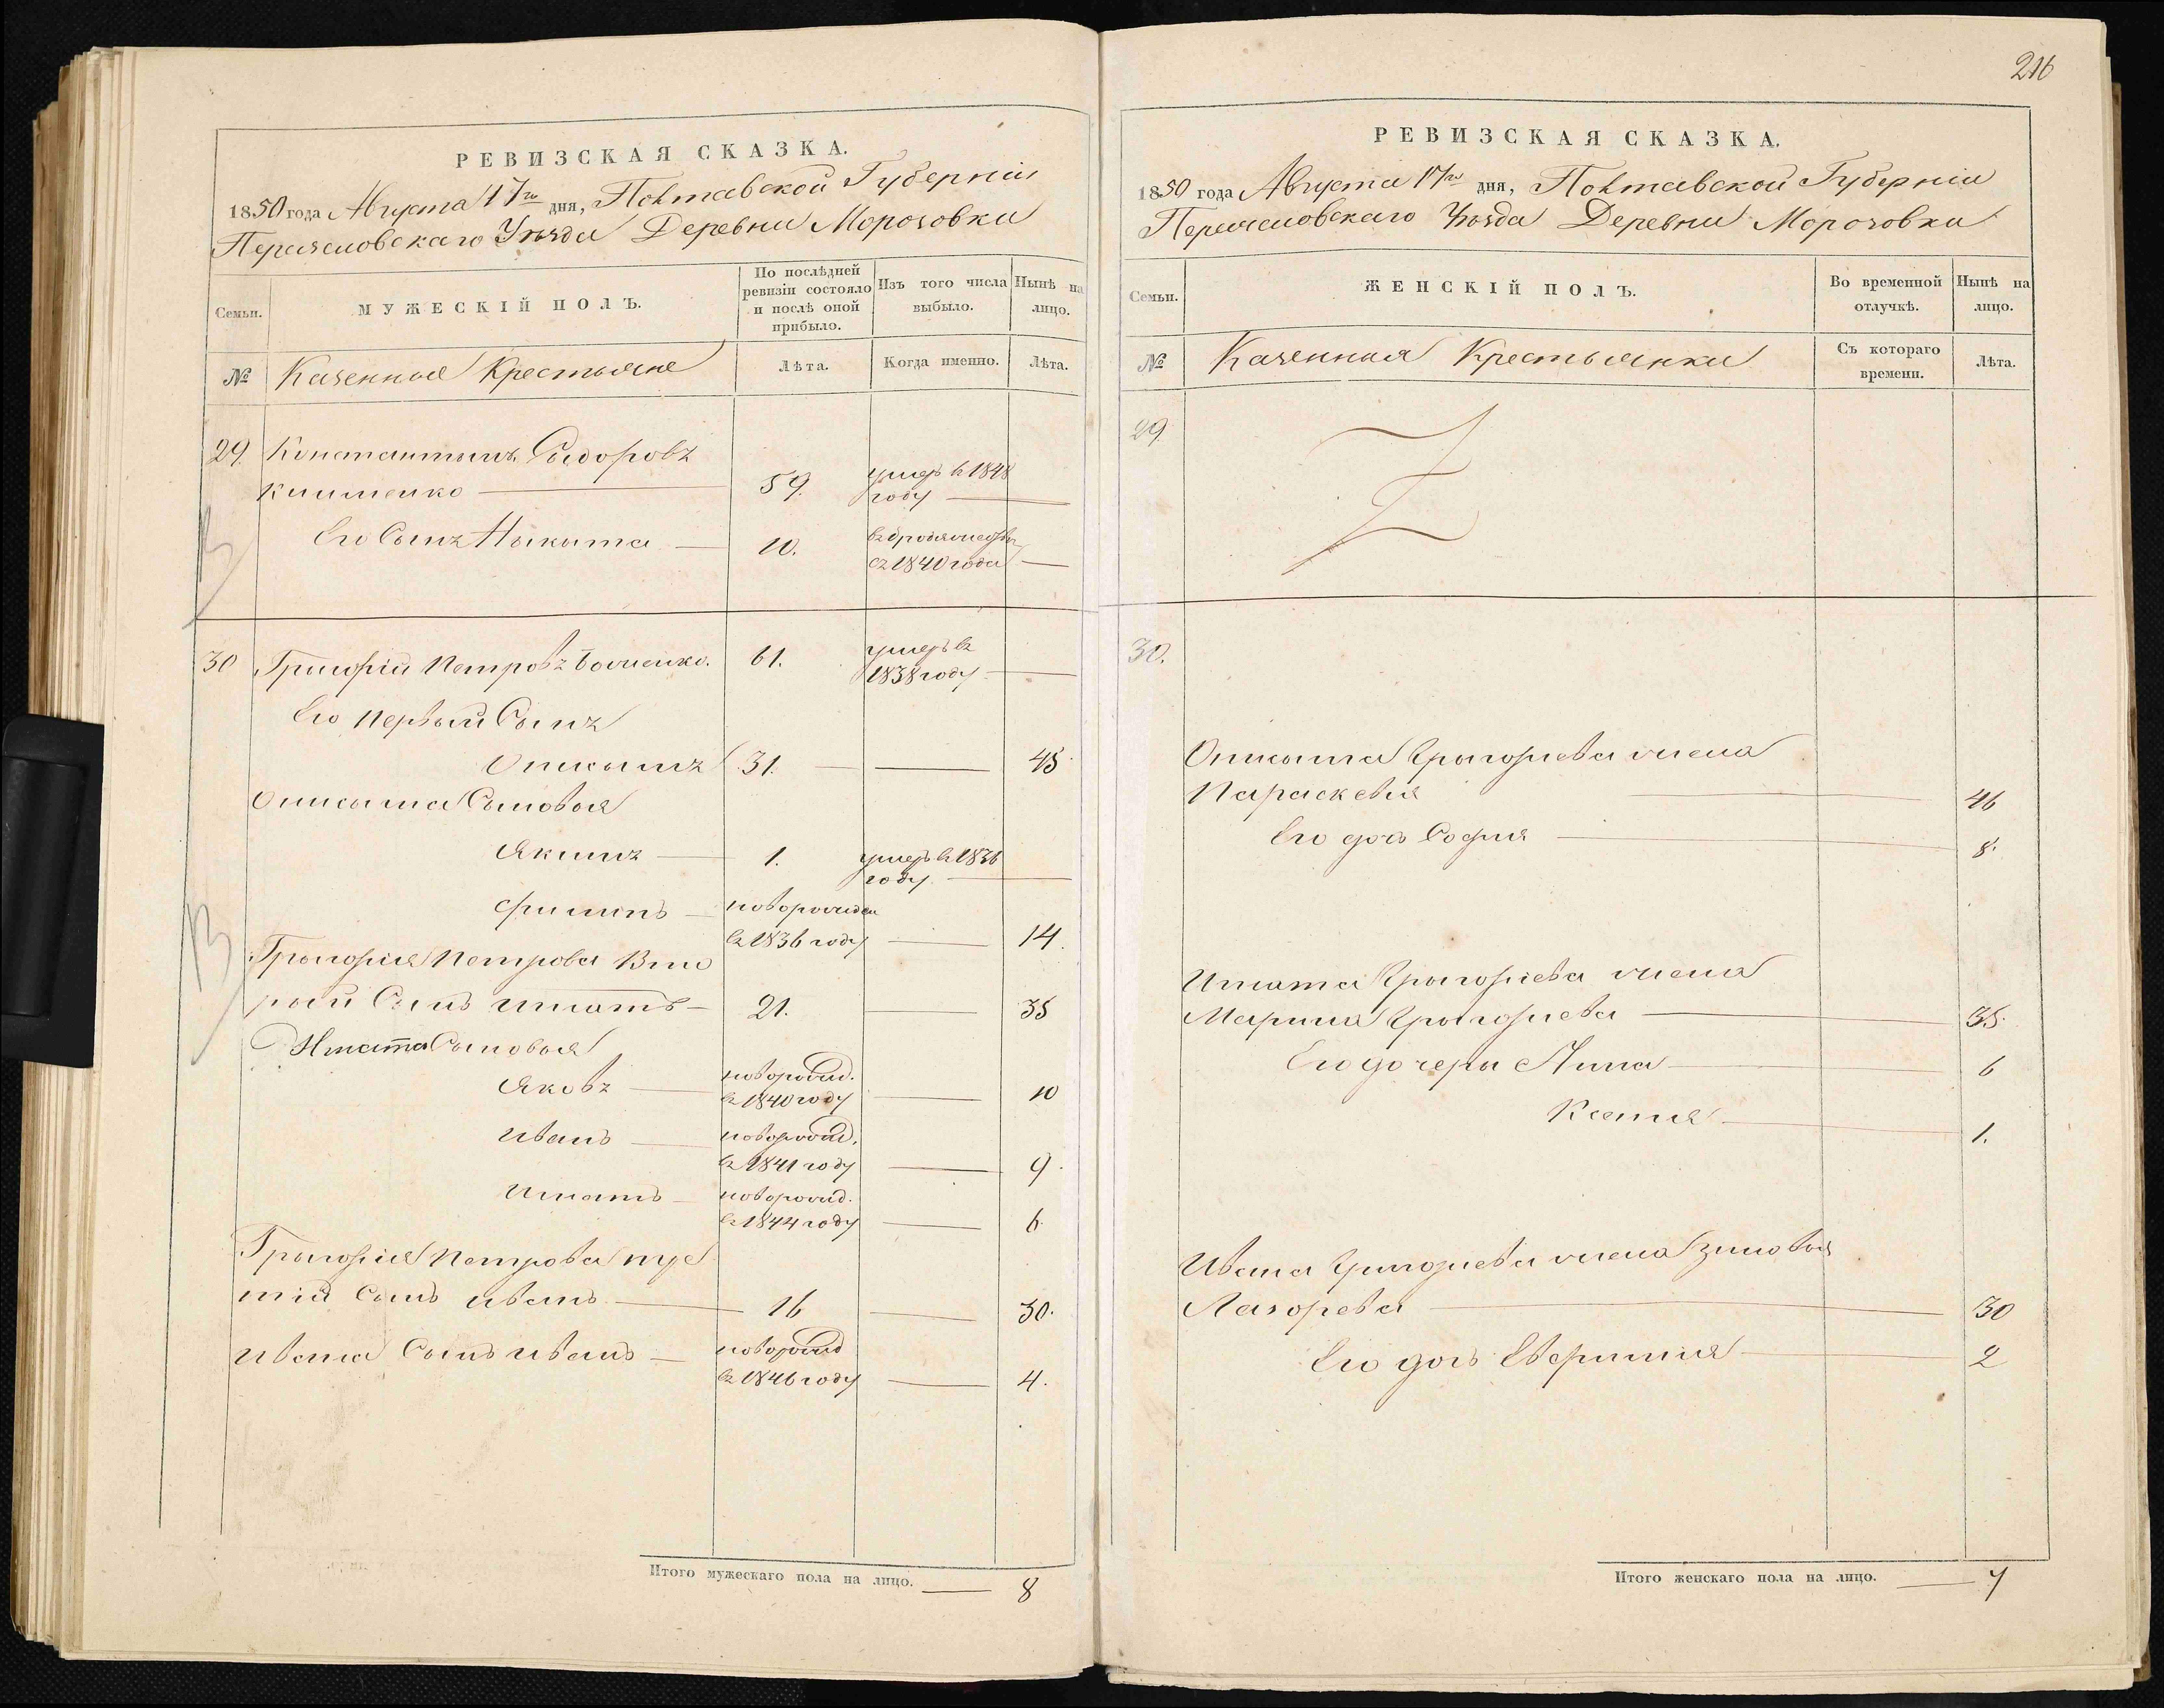 РЕВИЗСКАЯ СКАЗКА.
1850 года Августа 17го дня, Полтавской Губерніи
Переяславскаго Уѣзда Деревни Морозовки
Семьи.
МУЖЕСКІЙ ПОЛЪ.
По послѣдней ревизіи состояло и послѣ оной прибыло.
Изъ того числа выбыло.
Нынѣ на лицо.
№
Казенные Крестьяне
Лѣта.
Когда именно.
Лѣта.
29.
Константинъ Сыдоровъ
59.
умеръ въ 1848
году
Его Сынъ Никита
10.
въ бродяжеству
съ 1840 года
30
Григорій Петровъ
61.
умеръ въ
1838 году
Его первый Сынъ
Онисимъ
31.
45
Онисима Сыновья
Якимъ
1.
умеръ въ 1836
году
Филипъ
новорожден
въ 1836 году
14.
Григорія Петрова Вто
рый Сынъ Игнатъ
21.
35
Игната Сыновья
Яковъ
новорожд.
въ 1840 году
10
Иванъ
новорожд.
въ 1841 году
9.
Игнатъ
новорожд.
въ 1844 году
6.
Григорія Петрова тре
тій Сынъ Иванъ
16
30.
Ивана Сынъ Иванъ
новорожд
въ 1846 году
4.
Итого мужескаго пола на лицо.
8
216
РЕВИЗСКАЯ СКАЗКА.
1850 года Августа 17го дня, Полтавской Губерніи
Переяславскаго Уѣзда Деревни Морозовки
Семьи.
ЖЕНСКІЙ ПОЛЪ.
Во временной отлучкѣ.
Нынѣ на лицо.
№
Казенныя Крестьянки
Съ котораго времени.
Лѣта.
29
30.
Онисима Григорьева жена
Параскевия
46
Его дочь София
8.
Игната Григорьева жена
Марина Григорьева
35.
Его дочери Анна
6
Ксения
1.
Ивана Григорьева жена Зиновья
Лазорева
30
Его дочь
2
Итого женскаго пола на лицо.
7